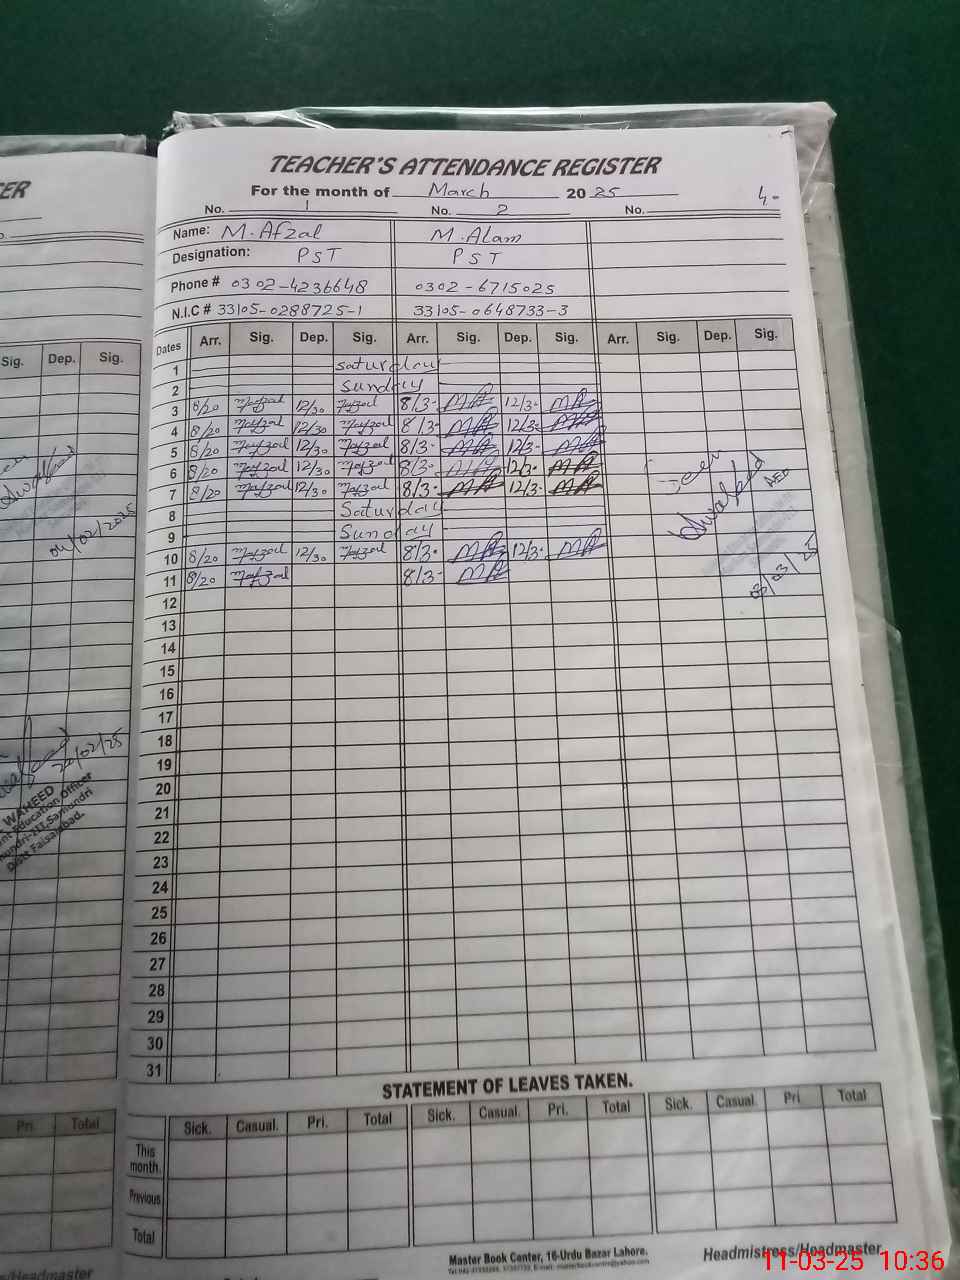 ER
TEACHER'S ATTENDANCE REGISTER
For the month of March 2025
4.
No. 1 No. 2 No.
Name: M. Afzal M. Alam
Designation: PST PST
Phone # 0302-4236648 0302-6715025
N.I.C # 33105-0288725-1 33105-0648733-3
Sig. Dep. Sig.
Dates Arr. Sig. Dep. Sig. Arr. Sig. Dep. Sig. Arr. Sig. Dep. Sig.
1 Saturday
2 Sunday
3 8/20 Mafzal 12/30 Mafzal 8/3- MA 12/3- MA
4 8/20 Mafzal 12/30 Mafzal 8/3- MA 12/3- MA
5 8/20 Mafzal 12/30 Mafzal 8/3- MA 12/3- MA
6 8/20 Mafzal 12/30 Mafzal 8/3- MA 12/3- MA
7 8/20 Mafzal 12/30 Mafzal 8/3- MA 12/3- MA
8 Saturday
9 Sunday
10 8/20 Mafzal 12/30 Mafzal 8/3- MA 12/3- MA
11 8/20 Mafzal 8/3- MA
12
13
14
15
16
17
18
19
20
21
22
23
24
25
26
27
28
29
30
31
Seen
AEO
03/25
04/02/2025
20/02/25
WAHEED
Education Officer
Samundri
Distt Faisalabad.
STATEMENT OF LEAVES TAKEN.
Pri. Total
Sick. Casual. Pri. Total Sick. Casual. Pri. Total Sick. Casual. Pri Total
This month.
Previous
Total
Master Book Center, 16-Urdu Bazar Lahore.
Headmistress/Headmaster
ess/Headmaster
11-03-25 10:36